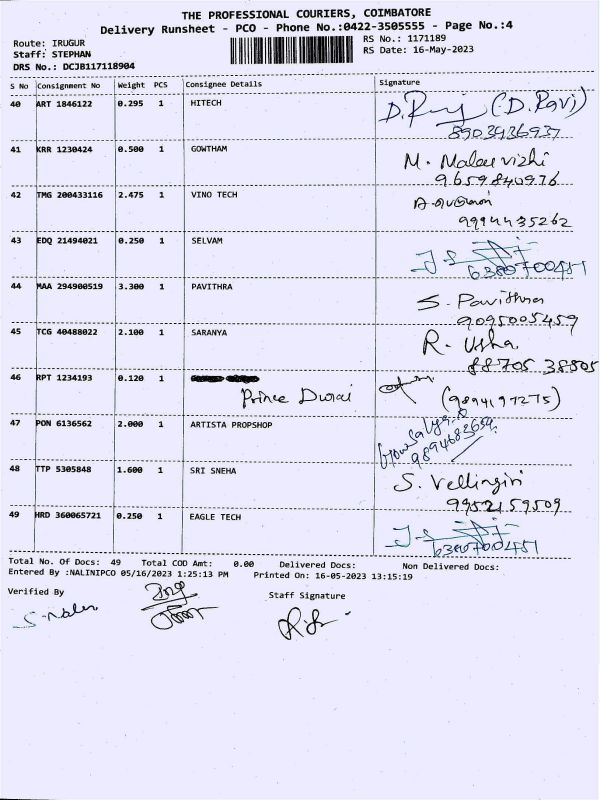 THE PROFESSIONAL COURIERS, COIMBATORE
Delivery Runsheet - PCO - Phone No.:0422-3505555 - Page No.:4
Route: IRUGUR
Staff: STEPHAN
DRS No.: DCJB117118904
RS No.: 1171189
RS Date: 16-May-2023
S No Consignment No Weight PCS Consignee Details Signature
40 ART 1846122 0.295 1 HITECH D. Ravi (D. Ravi)
8903436937
41 KRR 1230424 0.500 1 GOWTHAM M. Malarvizhi
9659840976
42 TMG 200433116 2.475 1 VINO TECH
9994435262
43 EDQ 21494021 0.250 1 SELVAM
6380700451
44 MAA 294900519 3.300 1 PAVITHRA S. Pavithra
9095005459
45 TCG 40488022 2.100 1 SARANYA R. Usha
88705 38505
46 RPT 1234193 0.120 1
Prince Durai (9894197275)
47 PON 6136562 2.000 1 ARTISTA PROPSHOP
9894683654
48 TTP 5305848 1.600 1 SRI SNEHA S. Vellingiri
9952159509
49 HRD 360065721 0.250 1 EAGLE TECH
6380700451
Total No. Of Docs: 49 Total COD Amt: 0.00 Delivered Docs: Non Delivered Docs:
Entered By :NALINIPCO 05/16/2023 1:25:13 PM Printed On: 16-05-2023 13:15:19
Verified By Staff Signature